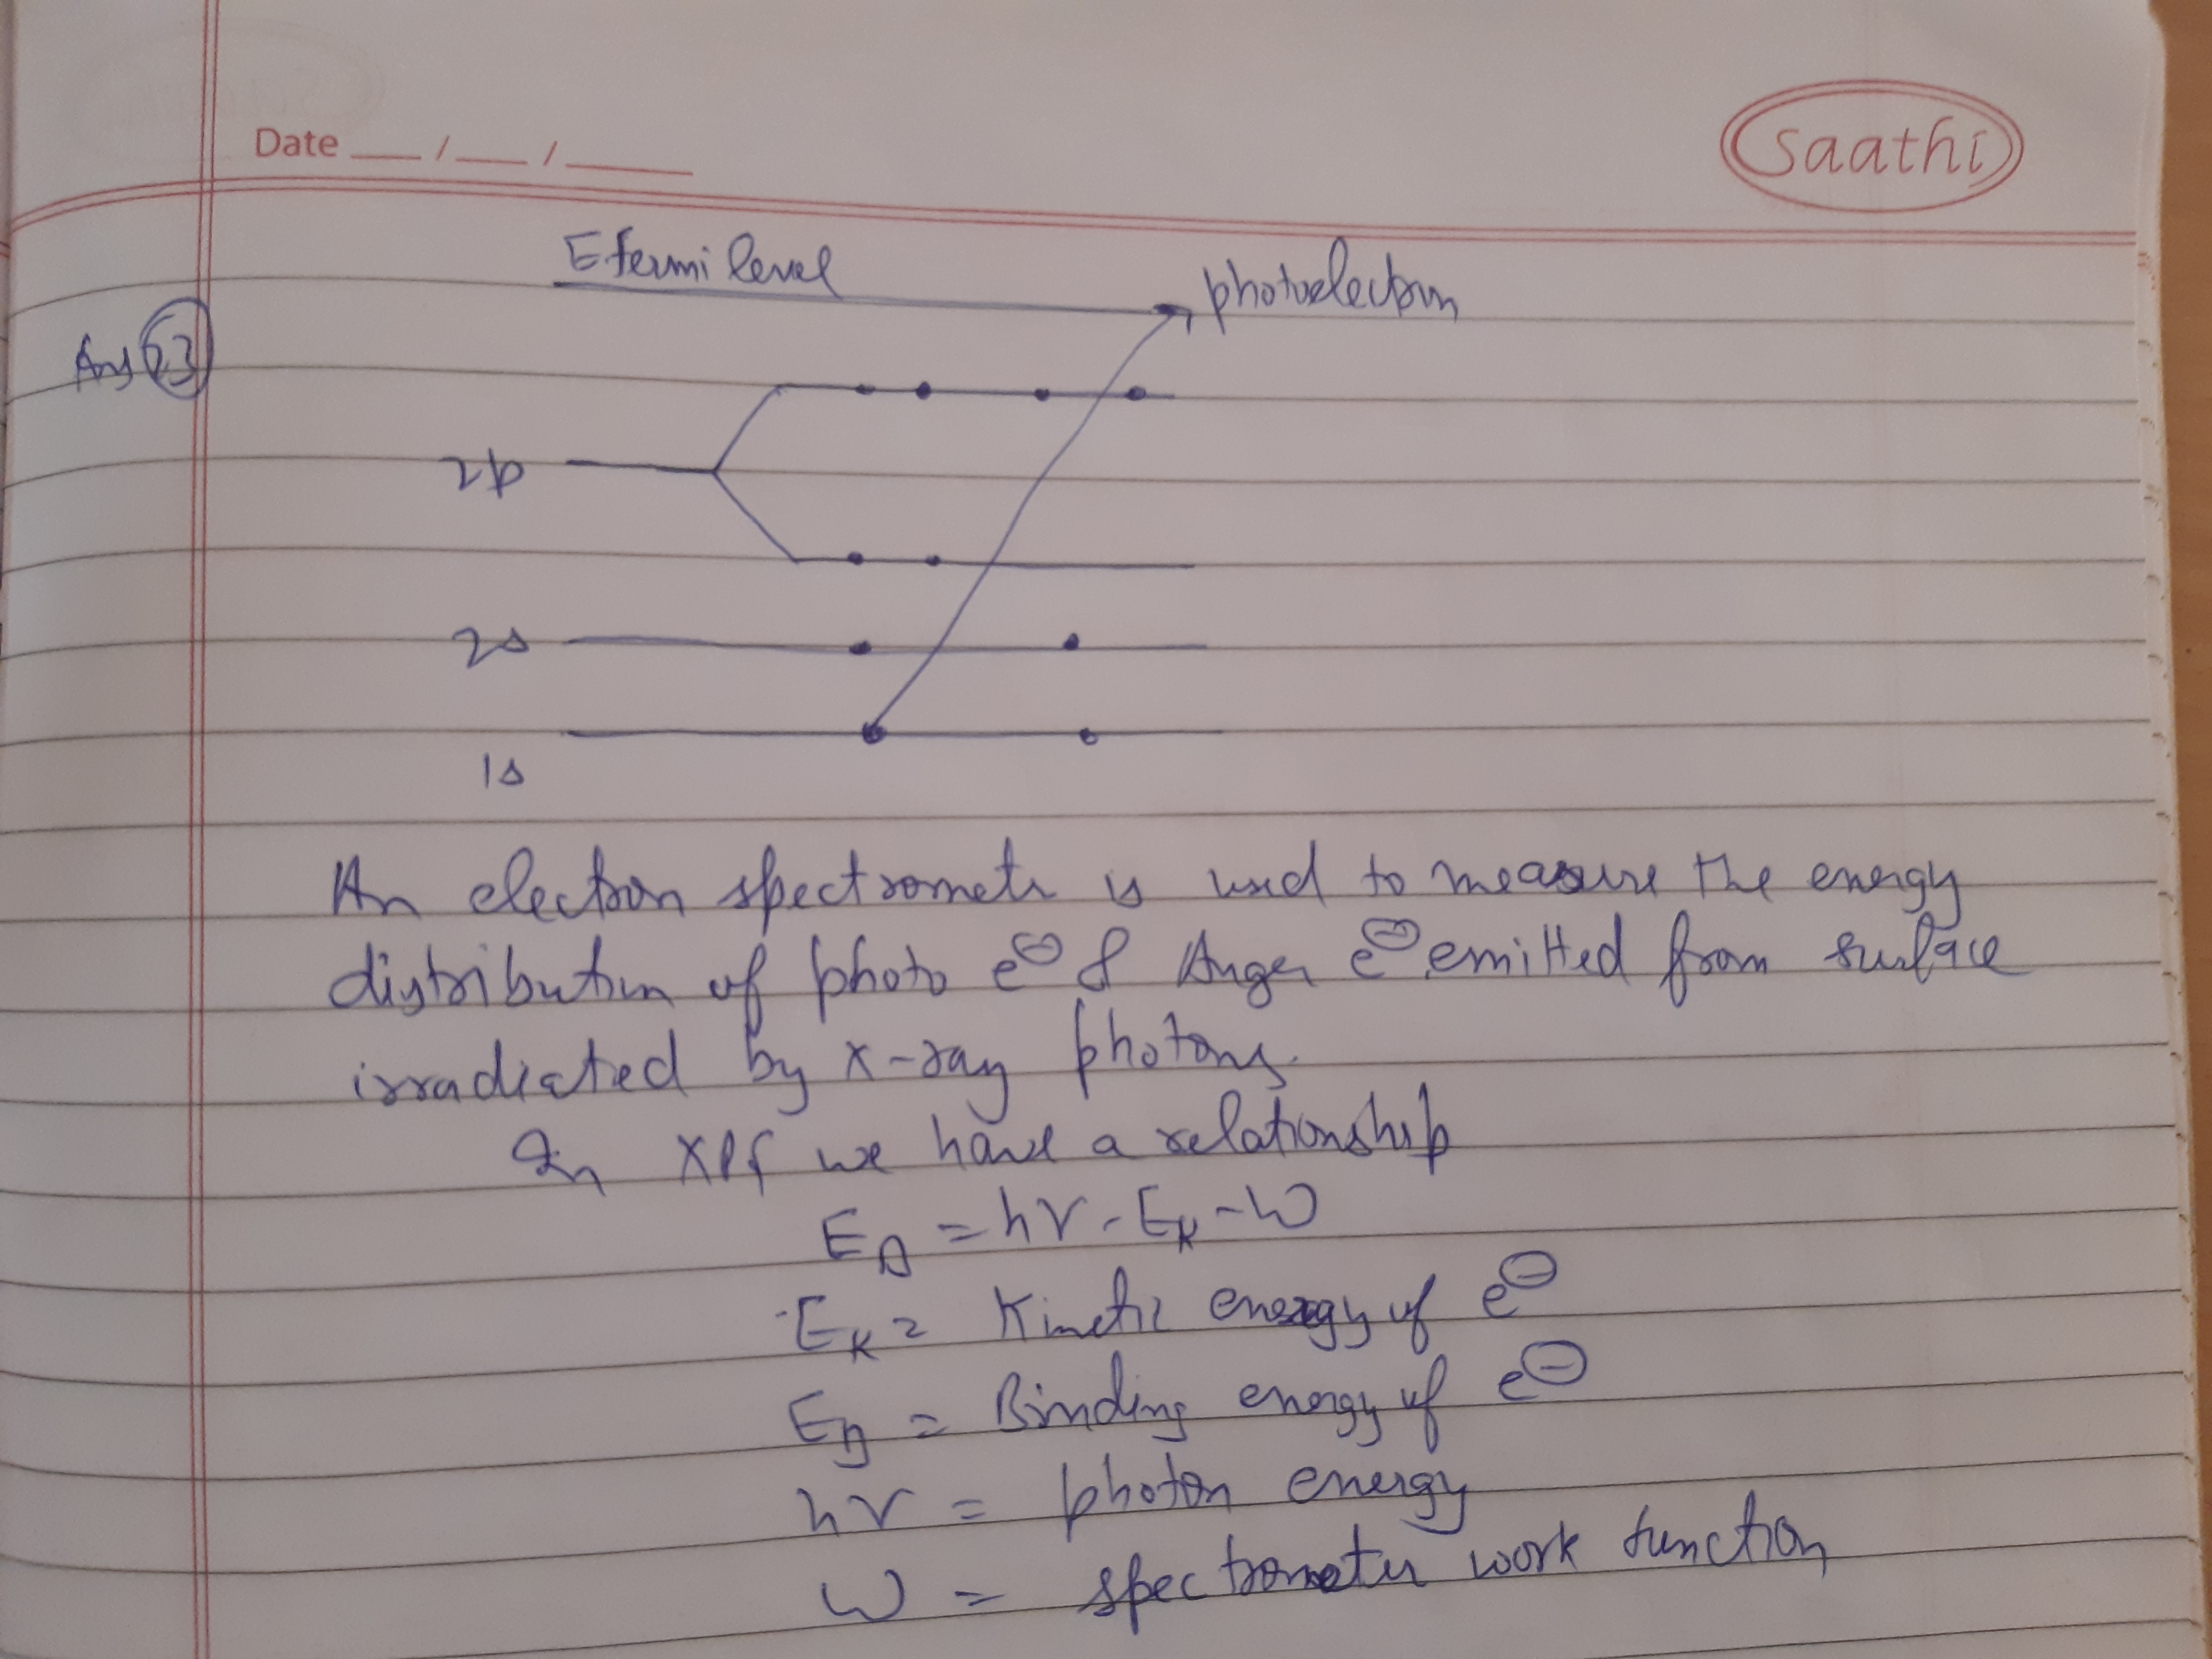 Date __/__/__
Saathi
Ans 63
E fermi level
photoelectron
2p
2s
1s
An electron spectrometer is used to measure the energy
distribution of photo e⊖ & Auger e⊖ emitted from surface
irradiated by x-ray photons.
In XPS we have a relationship
E_B = hν - E_K - W
E_K = Kinetic energy of e⊖
E_B = Binding energy of e⊖
hν = photon energy
W = spectrometer work function